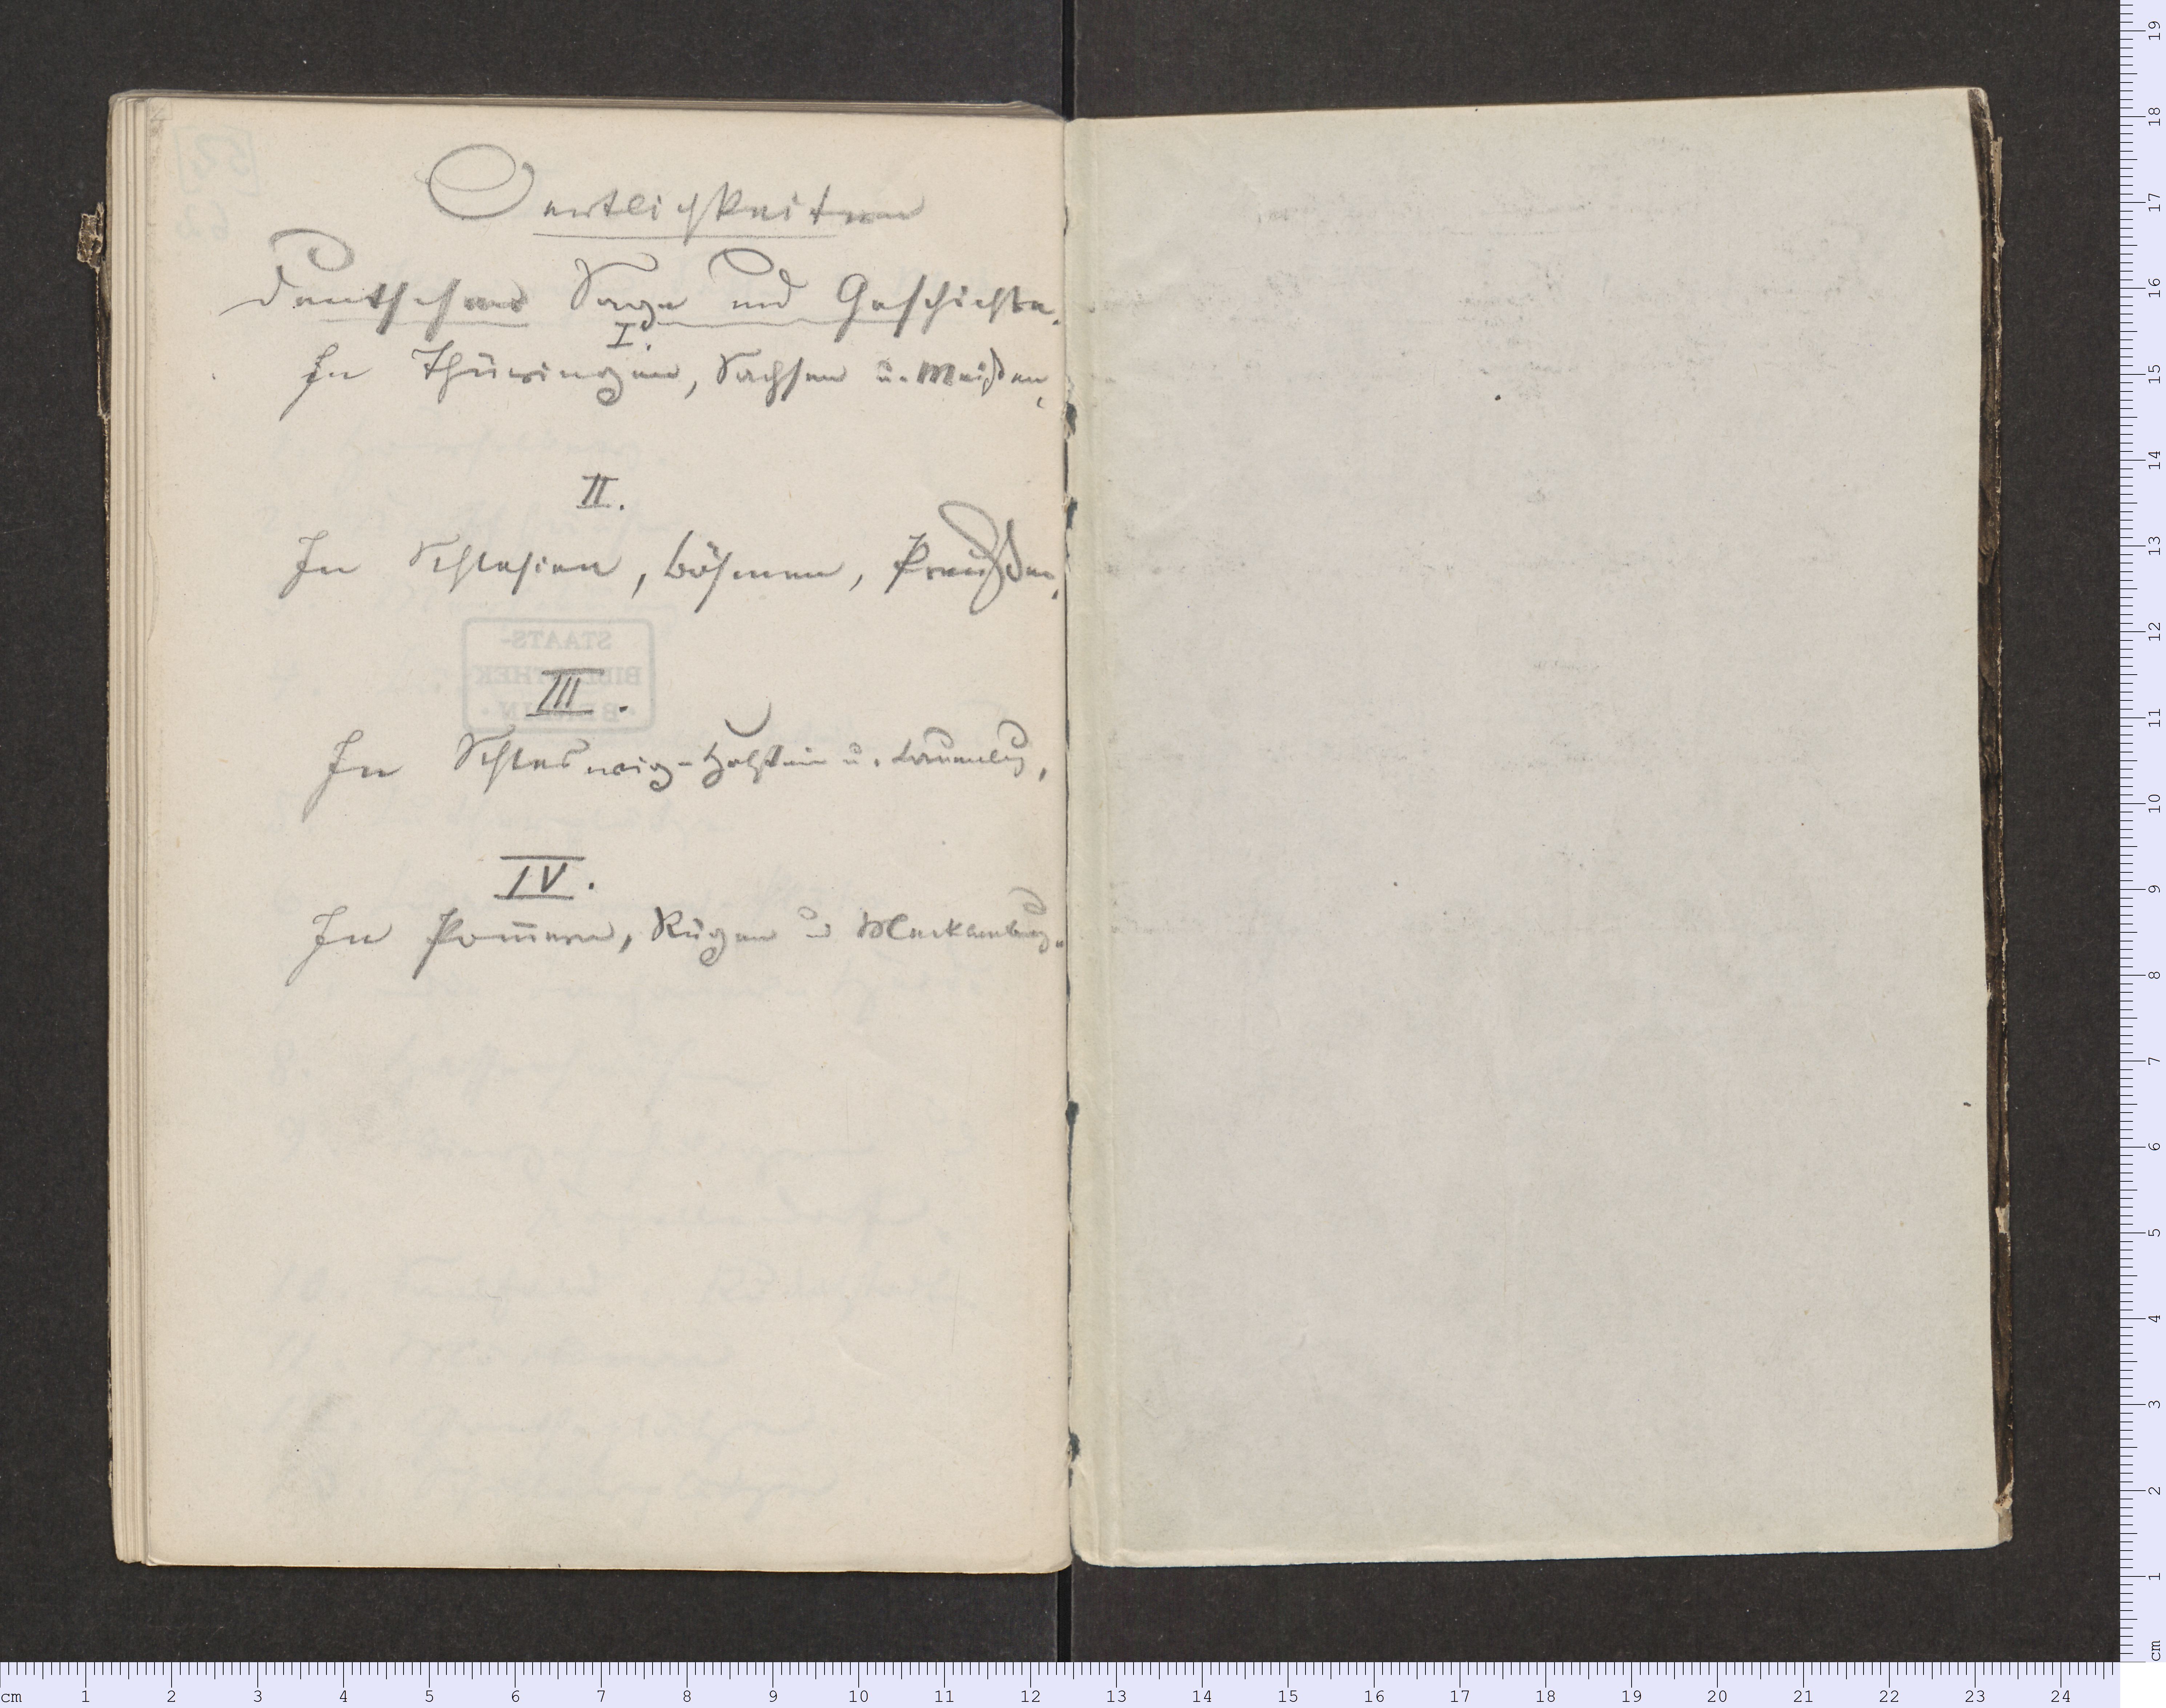 Oertlichkeiten
deutscher Sage und Geschichte.
I.
In Thüringen, Sachsen u. Meißen,
II.
In Schlesien, Böhmen, Preußen,
III.
In Schleswig-Holstein u. Lauenbg,
IV.
In Pom̅ern, Rügen u Mecklenburg.
STAATS-
BIBLIOTHEK
· BERLIN ·